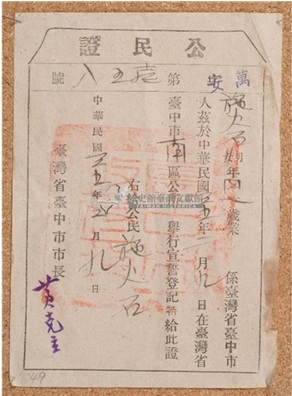 公民證
萬安 第 壱五八 號
施火石 年 歲業 係臺灣省臺中市
人茲於中華民國 五年 二月 九日在臺灣省
臺中市南區公 舉行宣誓登記特給此證
右給公民 施火石
中華民國 五年 月 九日
臺灣省臺中市市長 黃克立
國史館臺灣文獻館
TAIWAN HISTORICA
49